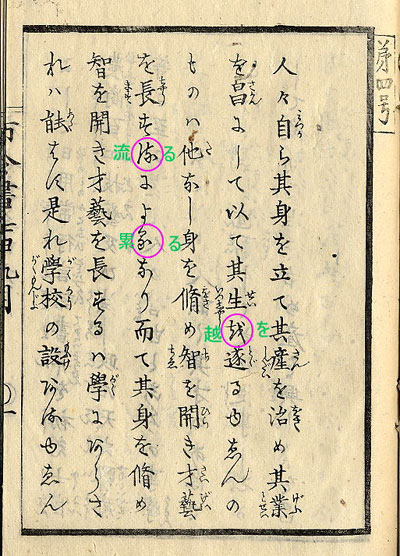 第四号
人々自ら其身を立て其産を治め其業
を昌にして以て其生を遂るゆゑんの
ものハ他なし身を脩め智を開き才藝
を長するによるなり而て其身を脩め
智を開き才藝を長するハ學にあらさ
れハ能はす是れ學校の設あるゆゑん
越 を
流 る
累 る